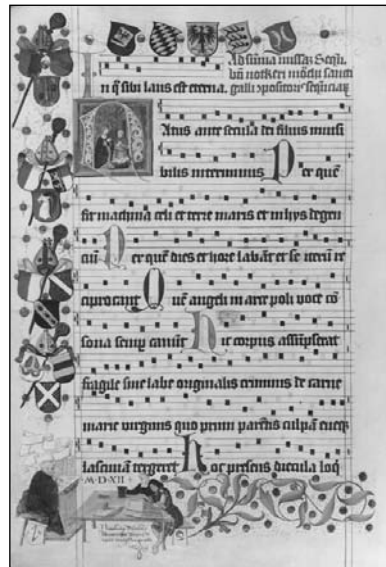 Ad sūmā missaʒ
notkeri mōchi sancti
galli
In q̄ sibi laus est eterna.
Natus ante secula dei filius inuisi
bilis interminus Per quē
fit machina celi et terre maris et in hijs degen
ciū Per quē dies et hore labāt et se iterū re
ciprocant Quē angeli in arce poli voce cō
sona semp canūt Hic corpus assūpserat
fragile sine labe originalis criminis de carne
marie virginis quo primi parētis culpā eueqʒ
lasciuiā tergeret Hoc presens diecula loq̄
M·D·XII